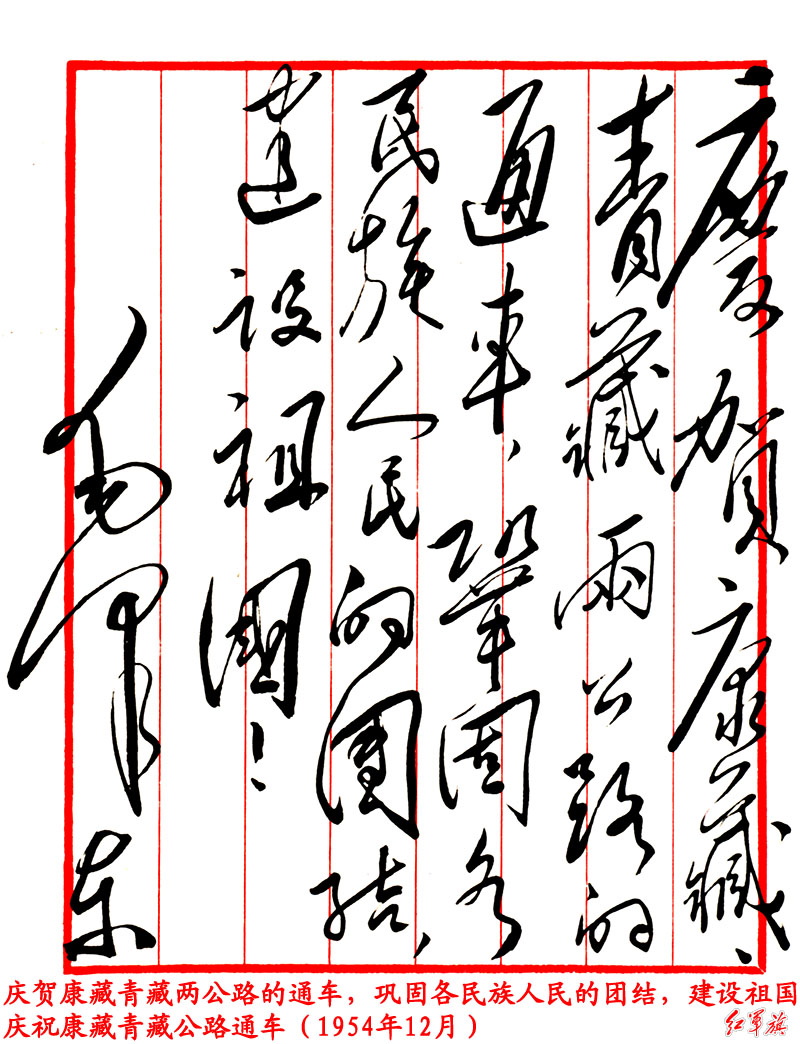 慶賀康藏、
青藏兩公路的
通車，鞏固各
民族人民的團結，
建設祖國！
毛泽东
庆贺康藏青藏两公路的通车，巩固各民族人民的团结，建设祖国
庆祝康藏青藏公路通车（1954年12月）
红军旗